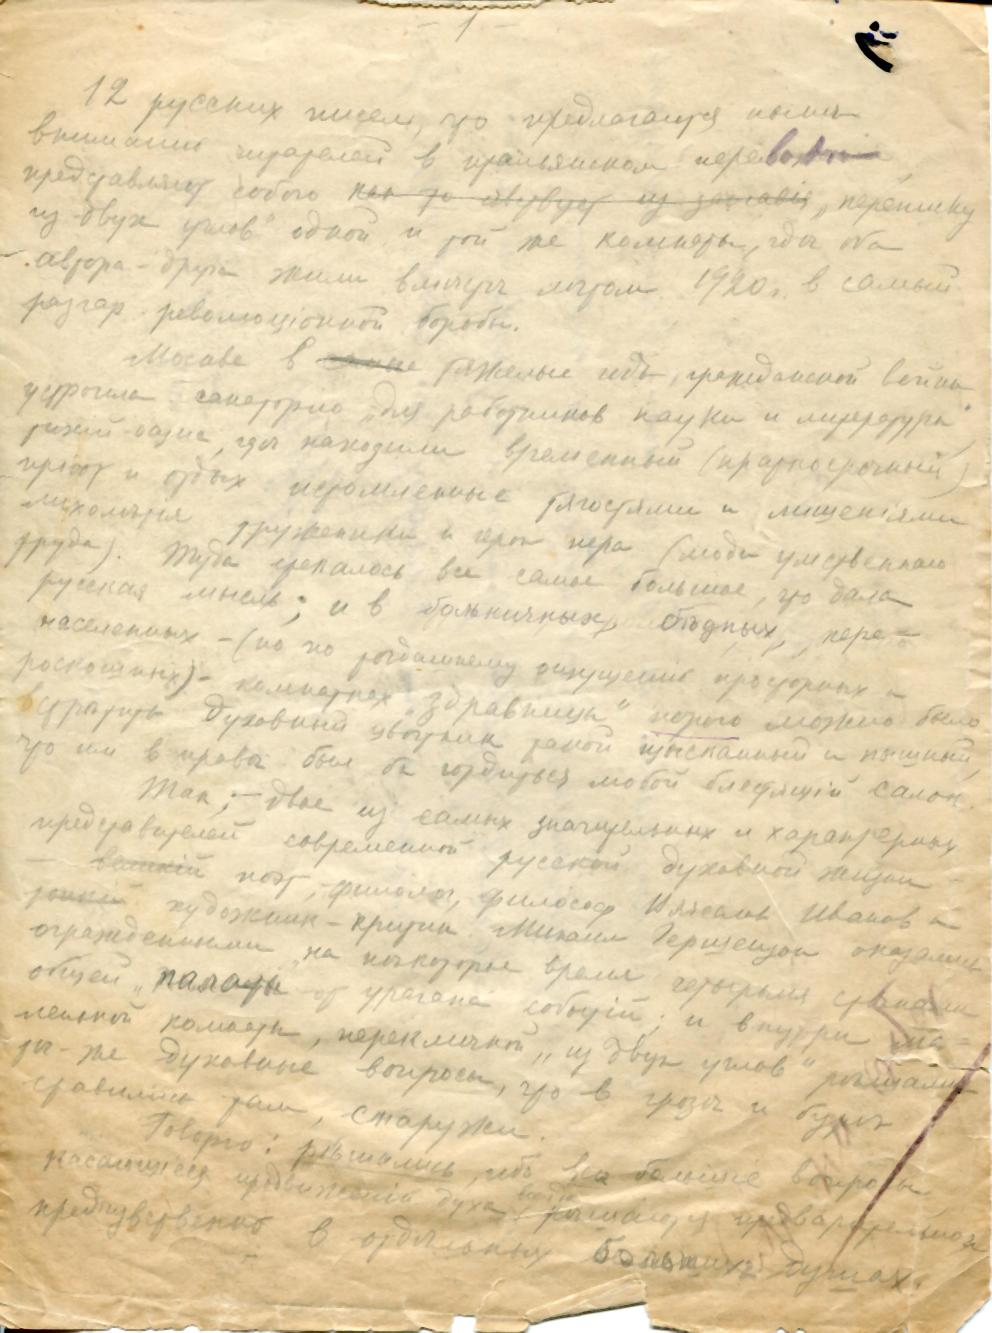 - 1 -
12 русских писем, что предлагаются ныне
вниманию читателей в итальянском переводе,
представляют собою как то явствует из заглавия „переписку
из двух углов" одной и той же комнаты, где оба
автора-друга жили вместе летом 1920 г. в самый
разгар революціонной борьбы.
Москве в тяжелые годы гражданской войны
устроила санаторию „для работников науки и литературы"
тихий оазис, где находили временный (краткосрочный)
пріют и отдых истомленные тягостями и лишеніями
лихолетья труженики и герои пера (люди умственнаго
труда). Туда стекалось все самое большое, что дала
русская мысль; и в больничных, бедных, пере-
населенных - (но по тогдашнему ощущенію просторных и
роскошных) - комнатах „здравницы" можно было
встретить духовный цветник такой изысканный и пышный,
что им в праве был бы гордиться любой блестящій салон.
Так, - двое из самых значительных и характерных
представителей современной русской духовной жизни -
- великій поэт, филолог, философ Вячеслав Иванов и
тонкій художник-критик Михаил Гершензон оказались
огражденными на некоторое время четырьмя стенами
общей „палаты" от урагана событій; и внутри ма-
ленькой комнаты, перекличкой „из двух углов" решались
те-же духовные вопросы, что в грозе и буре
ставились там, снаружи.
Говорю: решались, ибо все большіе вопросы
касающіеся продвиженія духа всегда решаются предварительно и
предчувственно в отдельных больших душах.